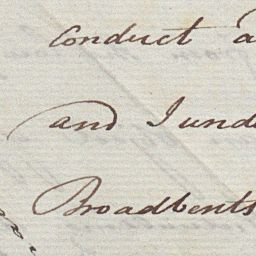 conduct a
and I unde
Broadbents